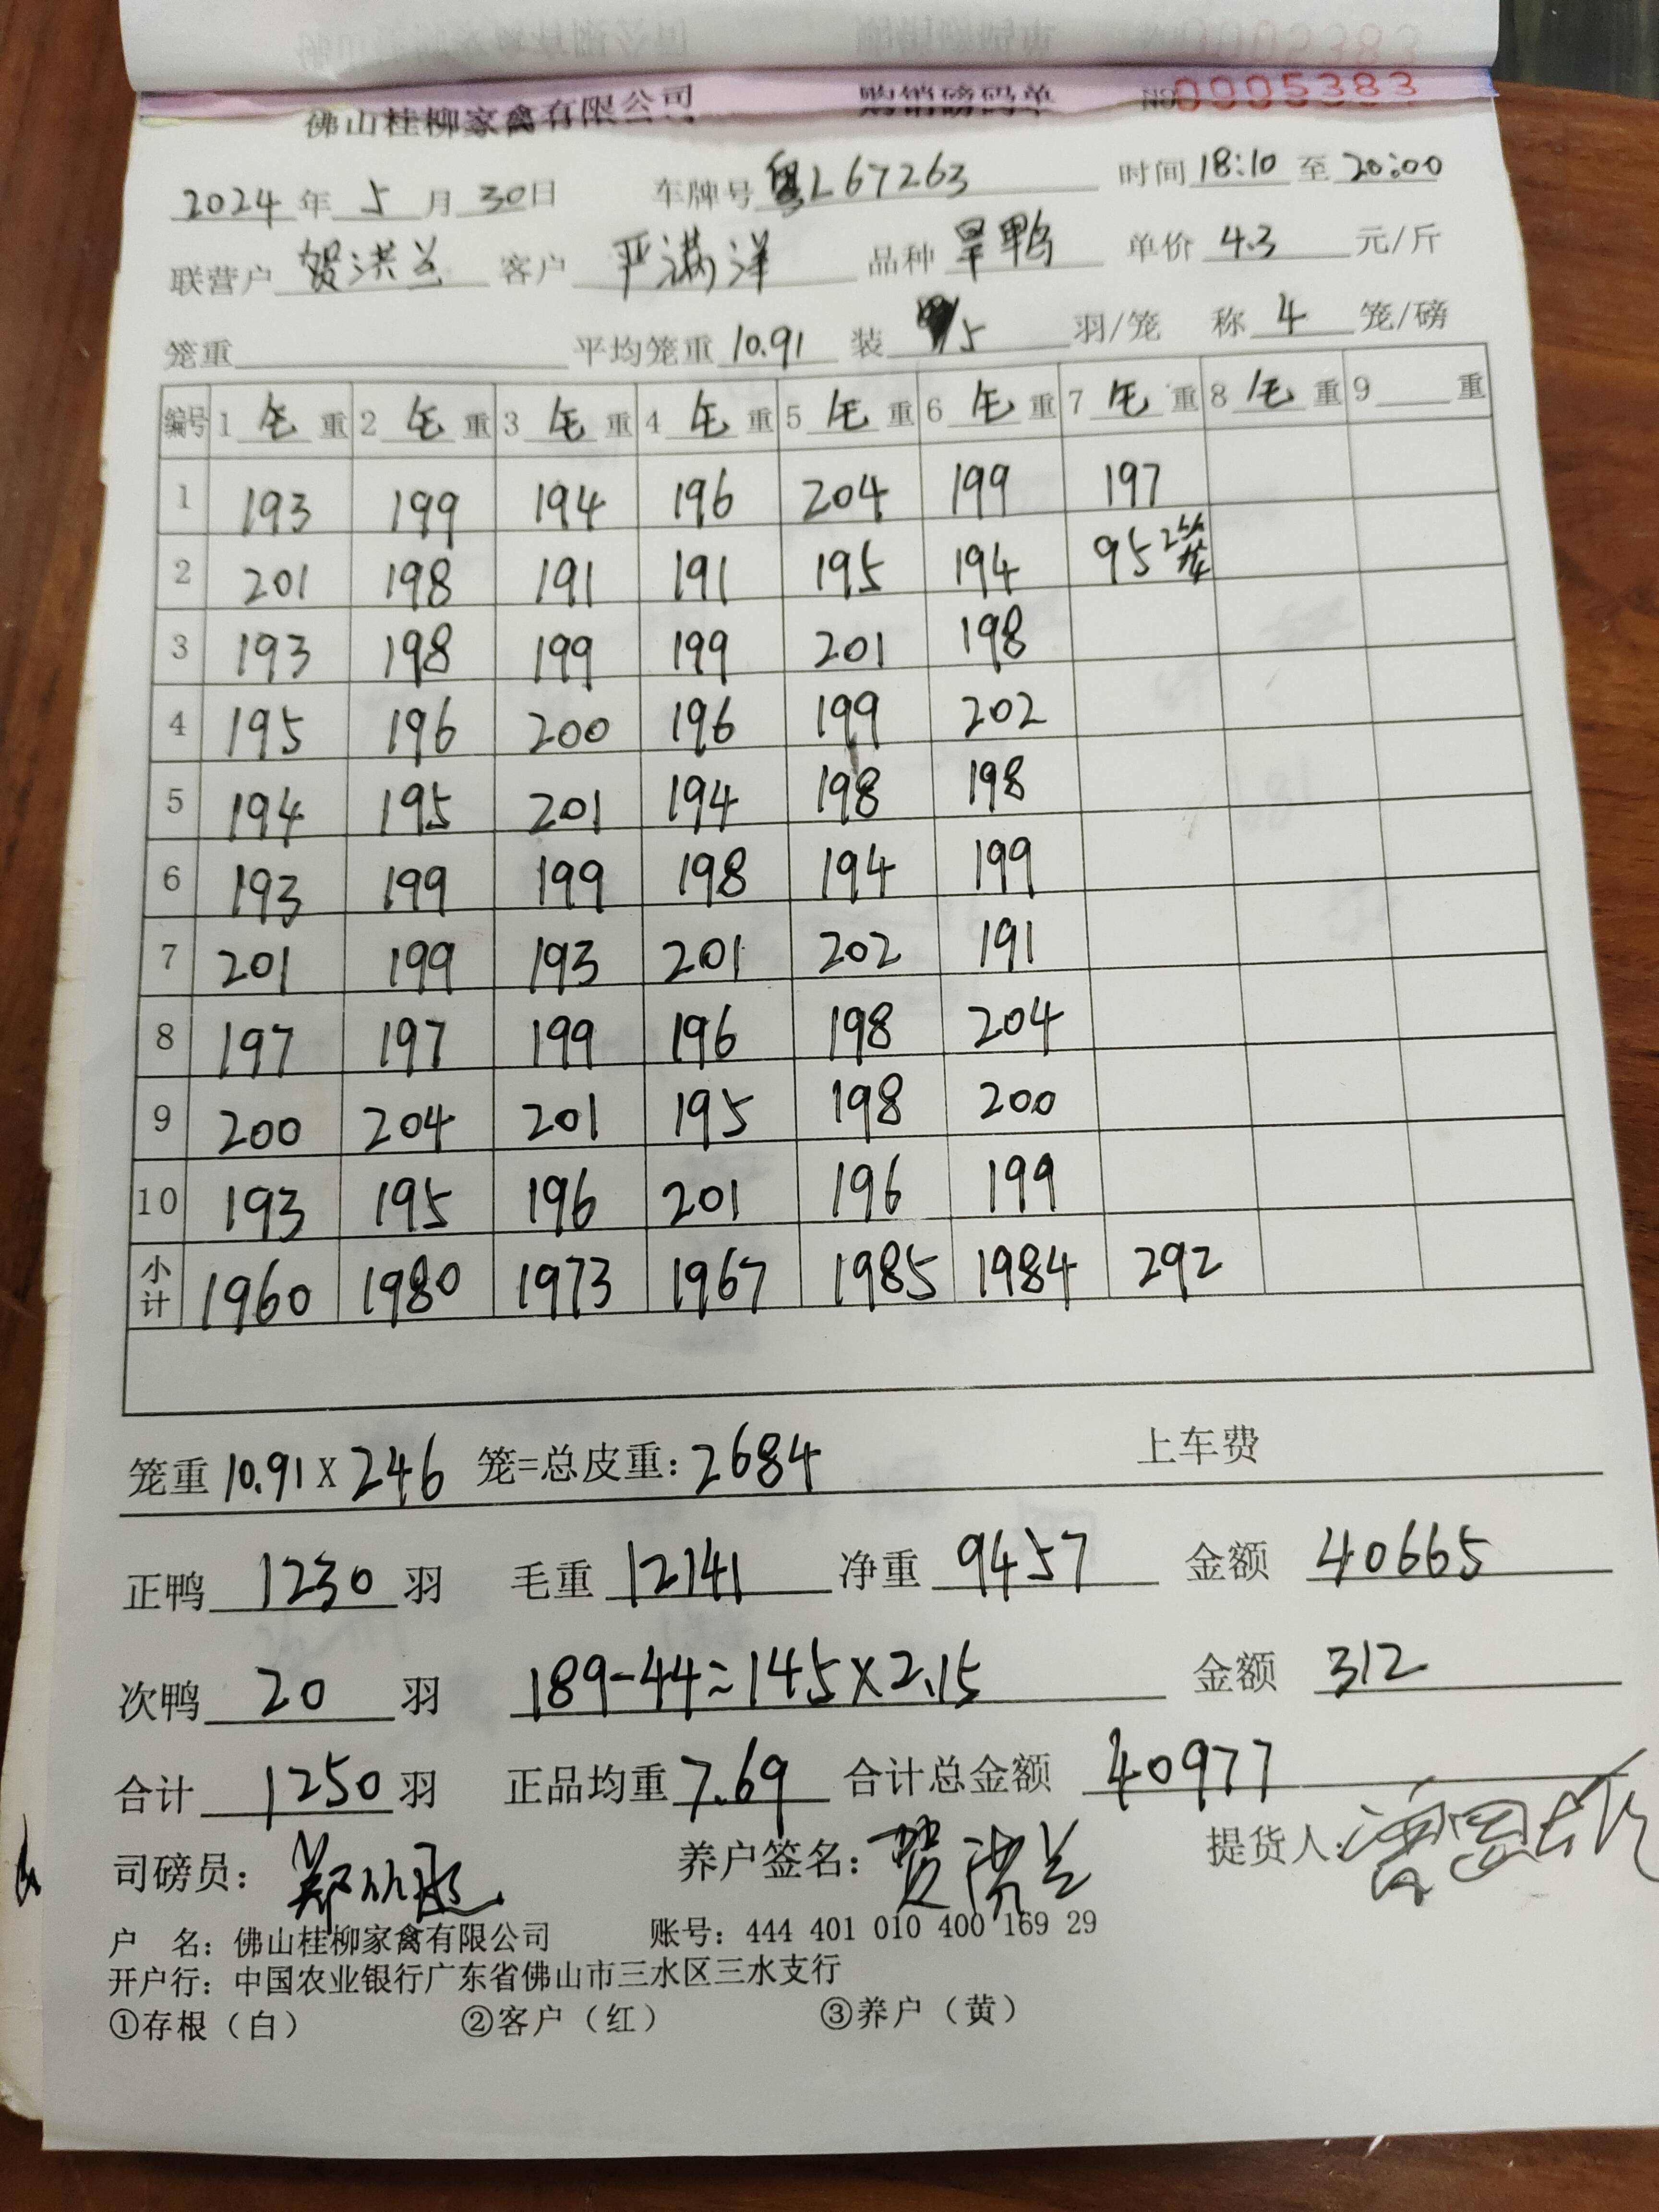 佛山桂柳家禽有限公司 购销磅码单 NO 0005383
2024年5月30日 车牌号 粤L67263 时间 18:10 至 20:00
联营户 贺洪兰 客户 严满洋 品种 旱鸭 单价 4.3 元/斤
笼重 平均笼重 10.91 装 5 羽/笼 称 4 笼/磅
编号 1 毛 重 2 毛 重 3 毛 重 4 毛 重 5 毛 重 6 毛 重 7 毛 重 8 毛 重 9 重
1 193 199 194 196 204 199 197
2 201 198 191 191 195 194 95 2笼
3 193 198 199 199 201 198
4 195 196 200 196 199 202
5 194 195 201 194 198 198
6 193 199 199 198 194 199
7 201 199 193 201 202 191
8 197 197 199 196 198 204
9 200 204 201 195 198 200
10 193 195 196 201 196 199
小计 1960 1980 1973 1967 1985 1984 292
笼重 10.91 X 246 笼=总皮重: 2684 上车费
正鸭 1230 羽 毛重 12141 净重 9457 金额 40665
次鸭 20 羽 189-44=145×2.15 金额 312
合计 1250 羽 正品均重 7.69 合计总金额 40977
司磅员: 养户签名: 贺洪兰 提货人:
户 名: 佛山桂柳家禽有限公司 账号: 444 401 010 400 169 29
开户行: 中国农业银行广东省佛山市三水区三水支行
①存根（白） ②客户（红） ③养户（黄）